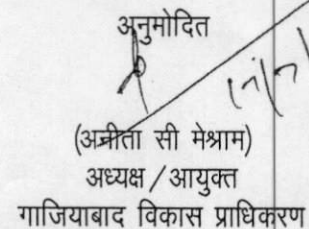 अनुमोदित
(अनीता सी मेश्राम)
अध्यक्ष / आयुक्त
गाजियाबाद विकास प्राधिकरण